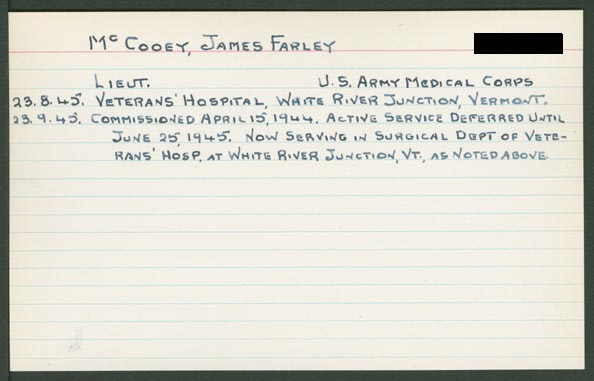 Mc Cooey, James Farley
Lieut. U.S. Army Medical Corps
23.8.45. Veterans' Hospital, White River Junction, Vermont.
23.9.45. Commissioned April 15, 1944. Active Service Deferred Until
June 25, 1945. Now Serving in Surgical Dept of Vete-
rans' Hosp. at White River Junction, Vt., as noted above.